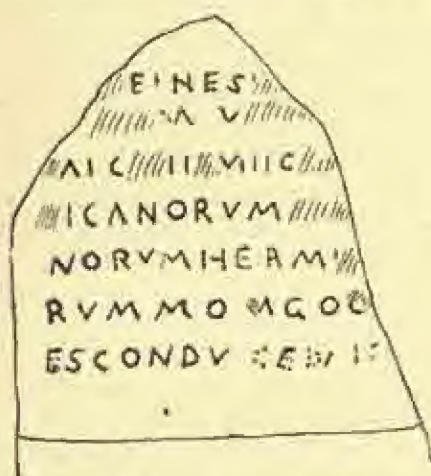 EINES
ΛV
ΛIC II VIIC
ICΛNORVM
NORVMHERM
RVMMO MGOC
ESCONDV